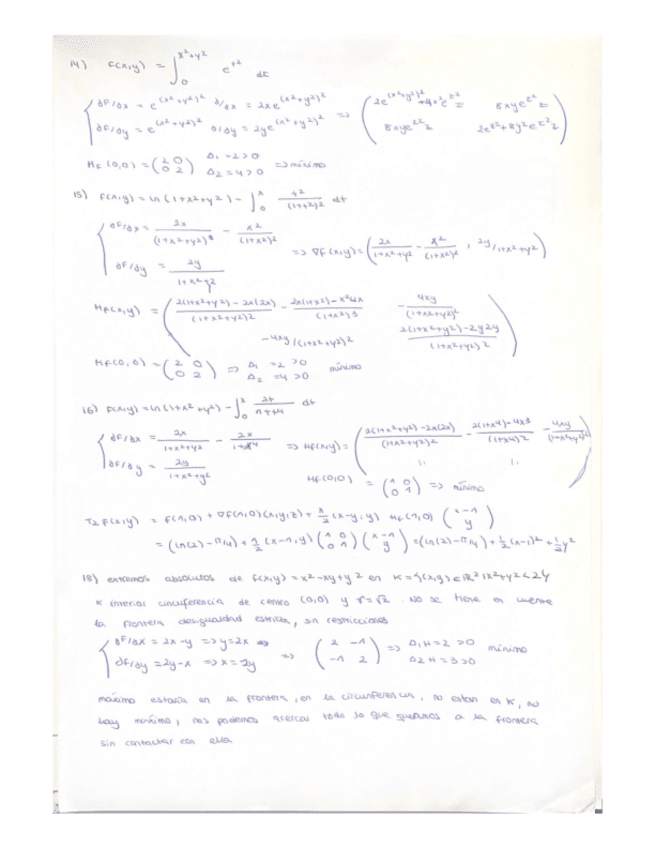 14) F(x,y) = ∫₀^(x²+y²) e^(t²) dt
{ ∂F/∂x = e^(x²+y²)² ∂/∂x = 2xe^(x²+y²)²
∂F/∂y = e^(x²+y²)² ∂/∂y = 2ye^(x²+y²)² =>
8xye^(z²)z
8xye^(z²)z
Hf(0,0) = (2 0 / 0 2) Δ₁ = 2 > 0 Δ₂ = 4 > 0 => mínimo
15) F(x,y) = ln(1+x²+y²) - ∫₀^x t²/(1+t²)² dt
{ ∂F/∂x = 2x/(1+x²+y²) - x²/(1+x²)²
∂F/∂y = 2y/(1+x²+y²) => ∇F(x,y) = (2x/(1+x²+y²) - x²/(1+x²)² , 2y/(1+x²+y²))
Hf(x,y) = ( (2(1+x²+y²) - 2x(2x))/(1+x²+y²)² - (2x(1+x²) - x²4x)/(1+x²)³ -4xy/(1+x²+y²)²
-4xy/(1+x²+y²)² (2(1+x²+y²) - 2y2y)/(1+x²+y²)² )
Hf(0,0) = (2 0 / 0 2) => Δ₁ = 2 > 0 Δ₂ = 4 > 0 mínimo
16) F(x,y) = ln(1+x²+y²) - ∫₀^x 2t/(1+t⁴) dt
{ ∂F/∂x = 2x/(1+x²+y²) - 2x/(1+x⁴) => Hf(x,y) = ( (2(1+x²+y²) - 2x(2x))/(1+x²+y²)² - (2(1+x⁴) - 4x3)/(1+x⁴)² -4xy/(1+x²+y²)²
∂F/∂y = 2y/(1+x²+y²)
Hf(0,0) = (1 0 / 0 1) => mínimo
T₂F(x,y) = F(1,0) + ∇F(1,0)(x,y,z) + 1/2 (x-y,y) Hf(1,0) (x-1 / y)
= (ln(2) - π/4) + 1/2 (x-1,y) (1 0 / 0 1) (x-1 / y) = (ln(2) - π/4) + 1/2 (x-1)² + 1/2 y²
18) extremos absolutos de F(x,y) = x²-xy+y² en K = {(x,y) ∈ ℝ² | x²+y² < 2}
K interior circunferencia de centro (0,0) y r=√2. No se tiene en cuenta
la frontera desigualdad estricta, sin restricciones
{ ∂F/∂x = 2x-y => y=2x
∂F/∂y = 2y-x => x=2y => (2 -1 / -1 2) => Δ₁H = 2 > 0 Δ₂H = 3 > 0 mínimo
máximo estaría en la frontera, en la circunferencia, no están en K, no
hay máximo, nos podemos acercar todo lo que queramos a la frontera
sin contactar con ella